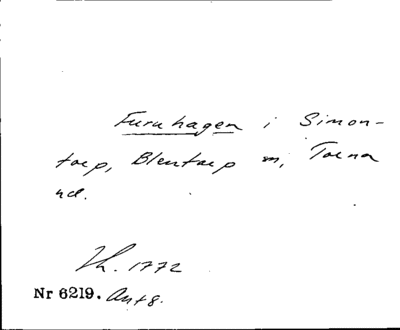 Furuhagen i Simon-
torp, Blentarp sn, Torna
hd.
Th. 1772
Nr 6219. Ant 8.